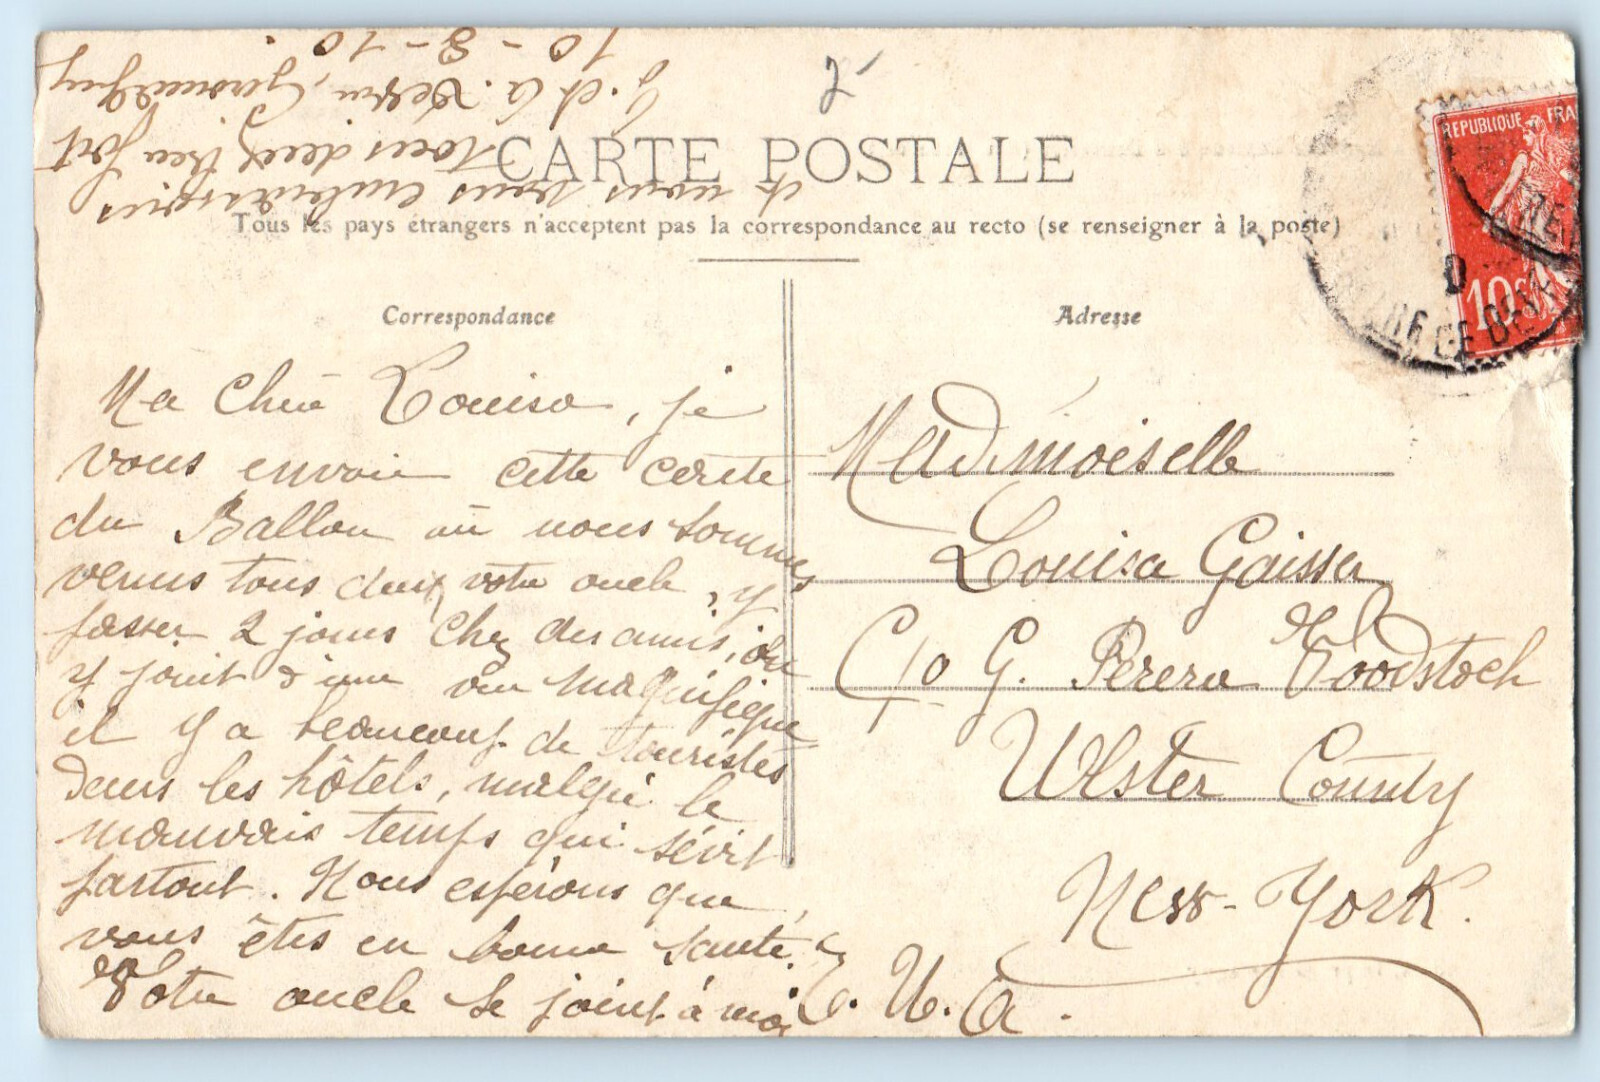 CARTE POSTALE
Tous les pays étrangers n'acceptent pas la correspondance au recto (se renseigner à la poste)
REPUBLIQUE FRA
10c
Correspondance
Ma Chère Louisa, je
vous envoie cette carte
du Ballon où nous sommes
venus tous deux votre oncle, y
passer 2 jours chez des amis, on
y jouit d'une vue magnifique
il y a beaucoup de touristes
dans les hôtels, malgré le
mauvais temps qui sévit
partout. Nous espérons que
vous êtes en bonne santé.
Votre oncle se joint à moi
et nous vous embrassons
tous deux bien fort
J. et G. Giromagny
10-8-10.
Adresse
Mademoiselle
Louisa Gaisser
C/o G. Perera Woodstock
Ulster County
New-York.
E. U. A.